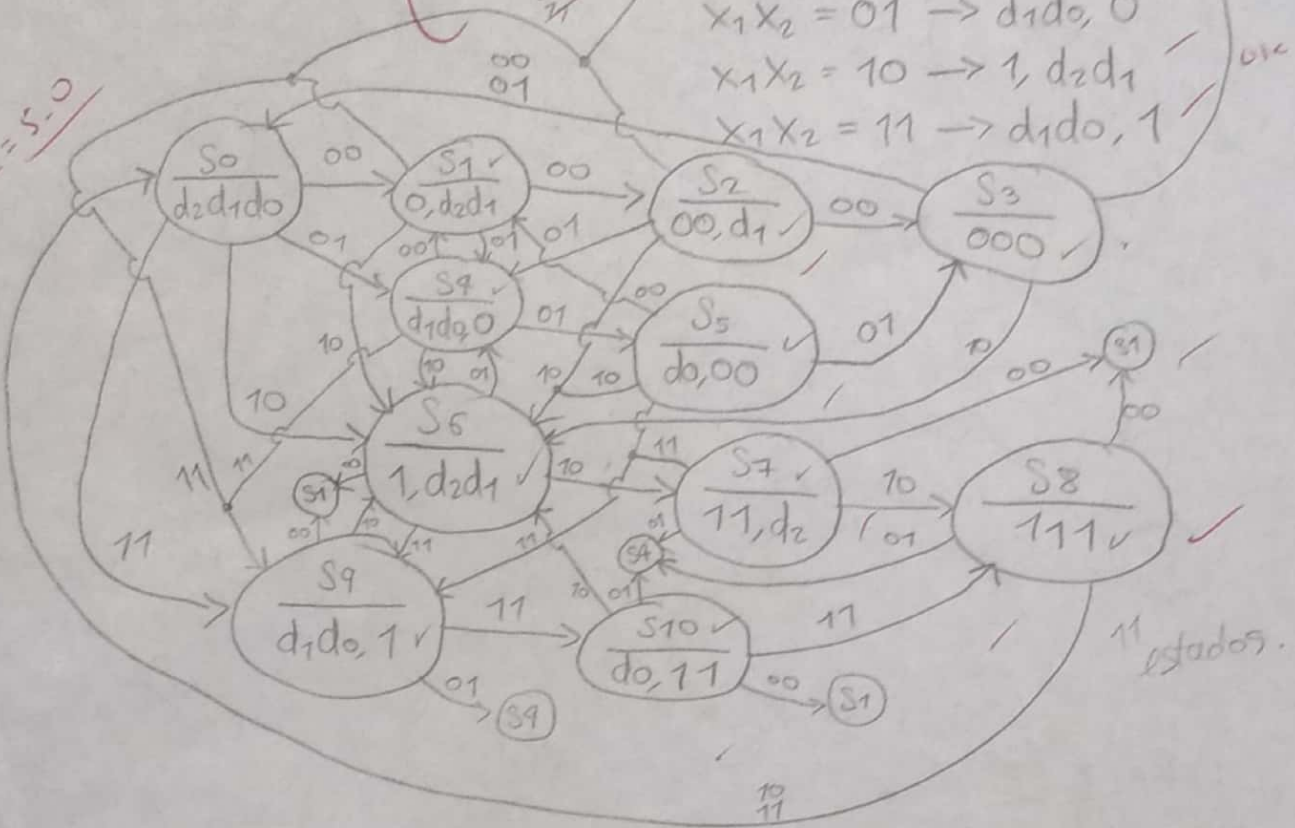 x₁x₂ = 01 → d₁d₀, 0
x₁x₂ = 10 → 1, d₂d₁
x₁x₂ = 11 → d₁d₀, 1
= 5.0
11
00
01
S0
d₂d₁d₀
00
S1
0,d₂d₁
00
S2
00,d₁
00
S3
000
01
00
01
01
S4
d₁d₀,0
01
00
S5
d₀,00
01
10
10
10
01
10
10
10
00
S1
00
S6
1,d₂d₁
10
11
S7
11,d₂
10
01
S8
111
11
11
11
S1
10
00
10
11
11
01
S4
S9
d₁d₀,1
11
10
01
S10
d₀,11
11
00
S1
01
S9
11 estados.
10
11